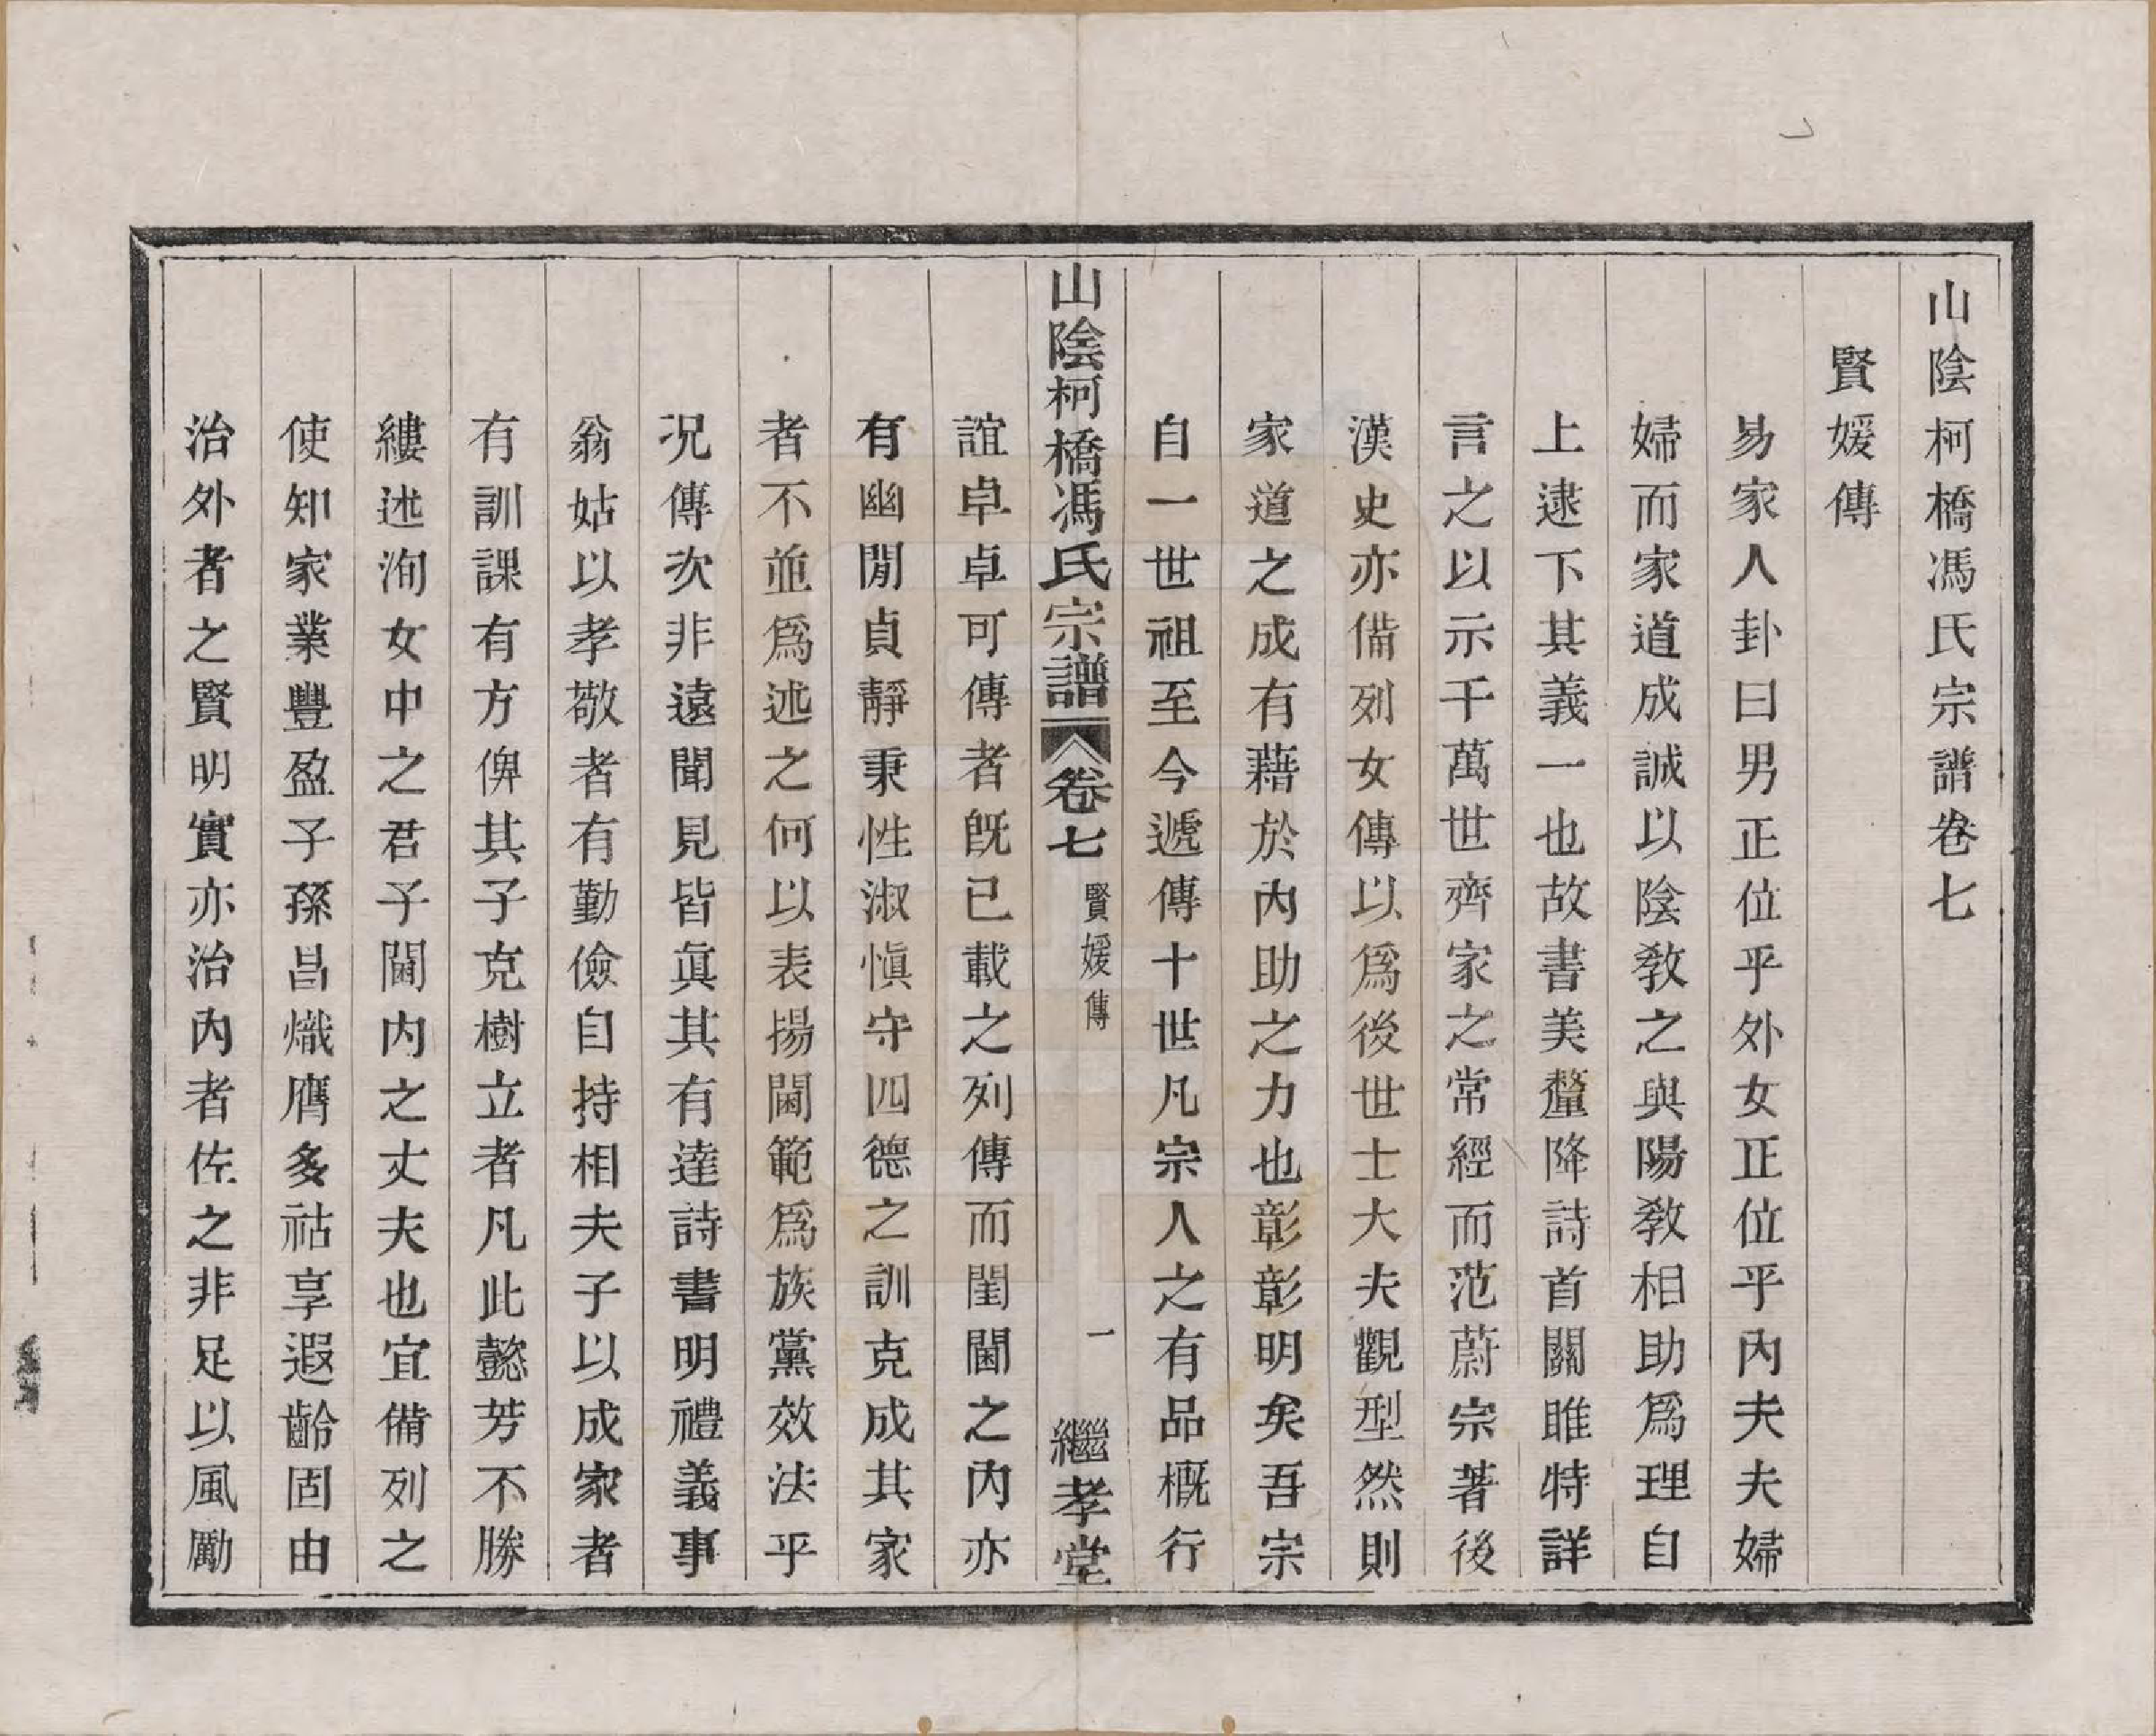 山陰柯橋馮氏宗譜卷七
賢媛傳
易家人卦曰男正位乎外女正位乎內夫夫婦
婦而家道成誠以陰敎之與陽敎相助爲理自
上逮下其義一也故書美釐降詩首關雎特詳
言之以示千萬世齊家之常經而范蔚宗著後
漢史亦備列女傳以爲後世士大夫觀型然則
家道之成有藉於內助之力也彰彰明矣吾宗
自一世祖至今遞傳十世凡宗人之有品槪行
山陰柯橋馮氏宗譜 卷七 賢媛傳 一 繼孝堂
誼卓卓可傳者旣已載之列傳而閨閫之內亦
有幽閒貞靜秉性淑愼守四德之訓克成其家
者不並爲述之何以表揚閫範爲族黨效法乎
况傳次非遠聞見皆眞其有達詩書明禮義事
翁姑以孝敬者有勤儉自持相夫子以成家者
有訓課有方俾其子克樹立者凡此懿芳不勝
縷述洵女中之君子閫內之丈夫也宜備列之
使知家業豐盈子孫昌熾膺多祜享遐齡固由
治外者之賢明實亦治內者佐之非足以風勵